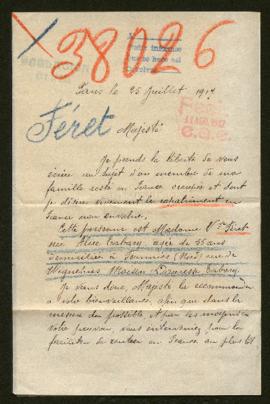 38026
Féret
Paris le 25 Juillet 1917
Majesté
Je prends la liberté de vous
écrire au sujet d'un membre de ma
famille resté en France occupée et dont
je désire vivement le rapatriement en
France non envahie.
Cette personne est Madame Vve Féret
née Alice agée de 55 ans
domiciliée à Fourmies (Nord) rue de
Wignehies Maison
Je viens donc, Majesté la recommander
à votre bienveillance, afin que dans la
mesure du possible et par les moyens de
votre pouvoir, vous interveniez pour lui
faciliter la rentrée en France au plus tôt